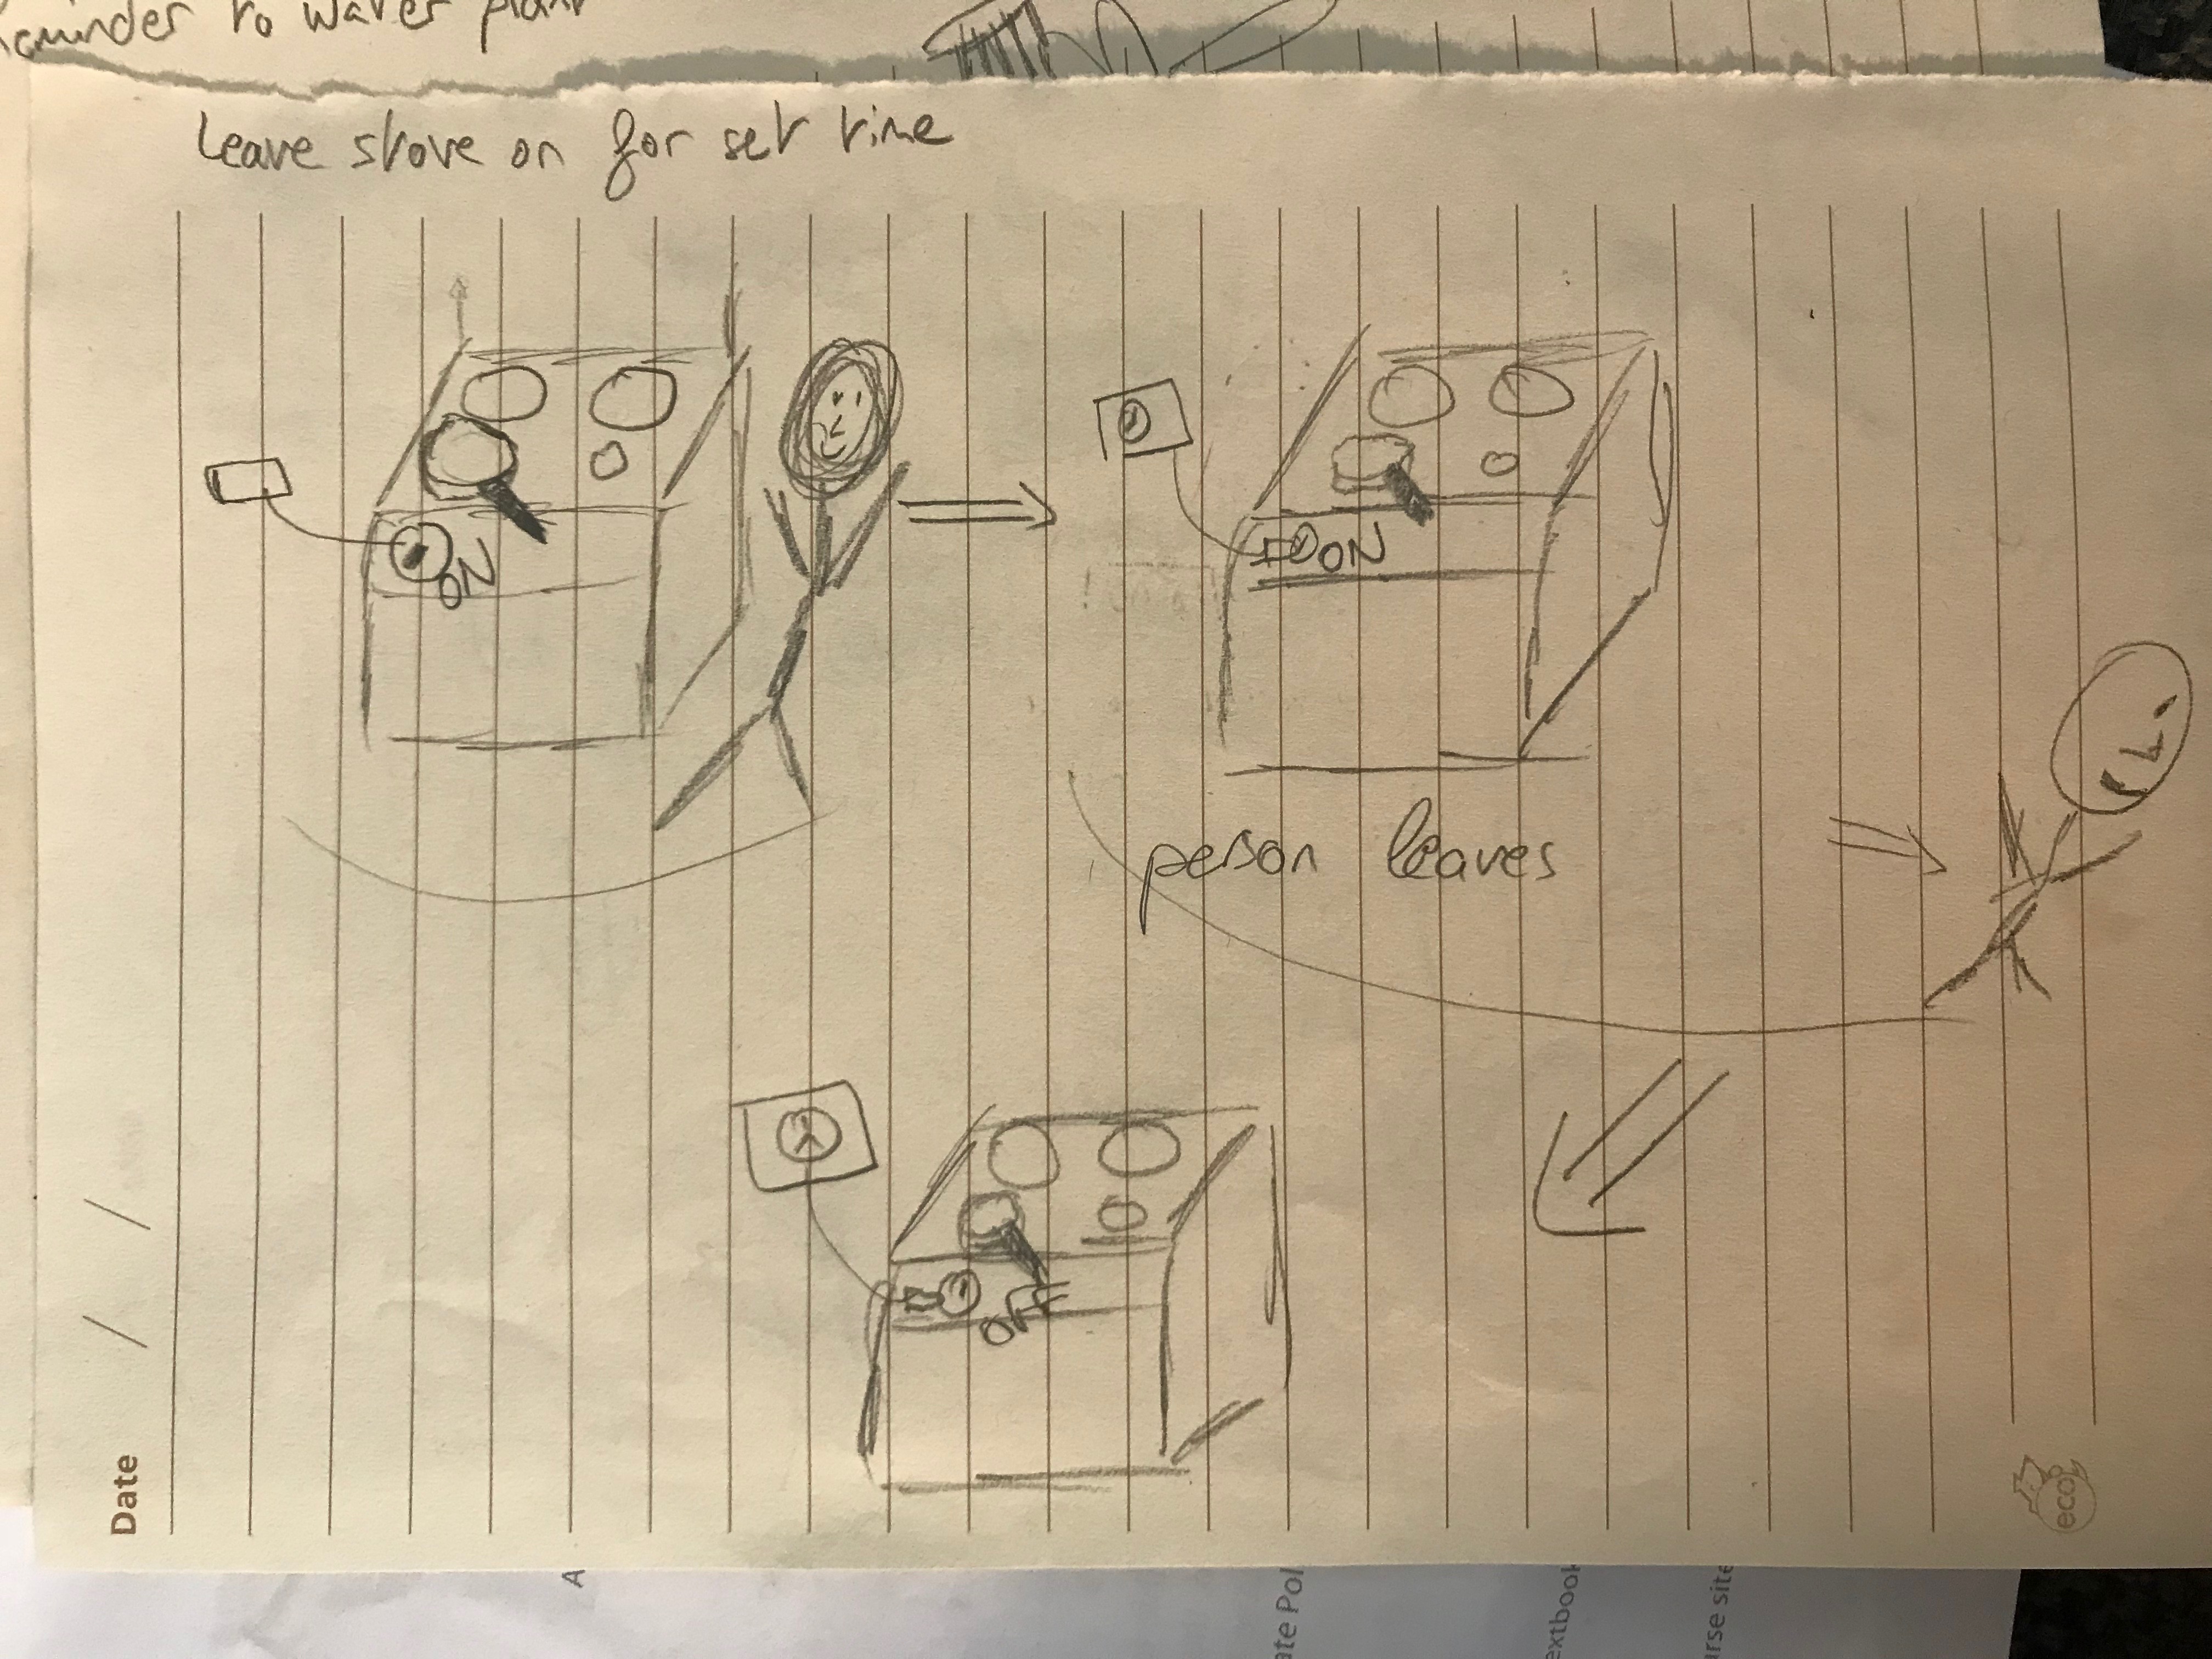 Reminder to water plant
Leave stove on for set time
ON
ON
person leaves
OFF
Date / /
eco
A
ate Pol
extbook
urse site